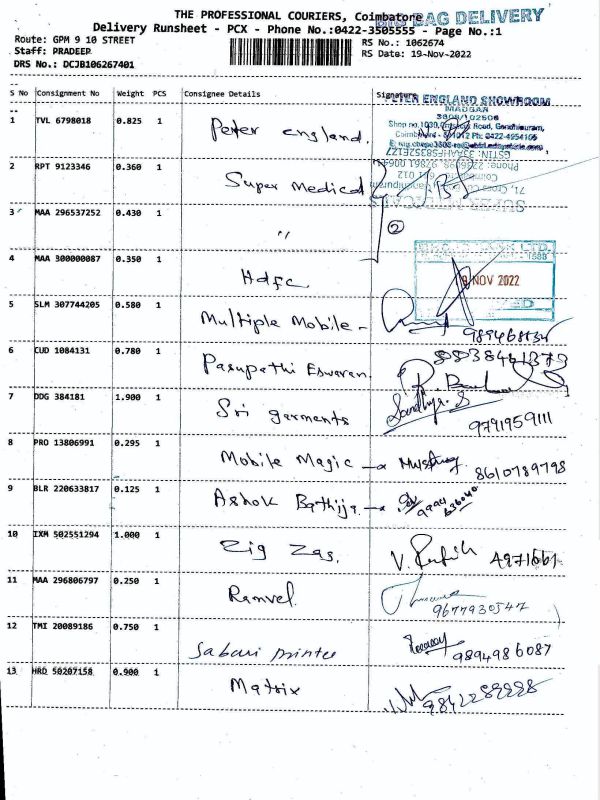 THE PROFESSIONAL COURIERS, Coimbatore
BIG BAG DELIVERY
Delivery Runsheet - PCX - Phone No.:0422-3505555 - Page No.:1
Route: GPM 9 10 STREET
RS No.: 1062674
Staff: PRADEEP
RS Date: 19-Nov-2022
DRS No.: DCJB106267401
S No Consignment No Weight PCS Consignee Details Signature
PETER ENGLAND SHOWROOM
1 TVL 6798018 0.825 1 Peter england.
2 RPT 9123346 0.360 1 Super Medical
3 MAA 296537252 0.430 1 〃
2
4 MAA 300000087 0.350 1 Hdfc
NOV 2022
5 SLM 307744205 0.580 1 Multiple Mobile -
6 CUD 1084131 0.780 1 Pasupathi Eswaran
8838461379
7 DDG 384181 1.900 1 Sri garments Sandhya. S
9791959111
8 PRO 13806991 0.295 1 Mobile Magic
8610789798
9 BLR 220633817 0.125 1 Ashok
9994
636040
10 IXM 502551294 1.000 1 Zig Zag.
11 MAA 296806797 0.250 1 Ramvel
9677930547
12 TMI 20089186 0.750 1 Sabari printee
9894986087
13 HRD 50207158 0.900 1 Matrix